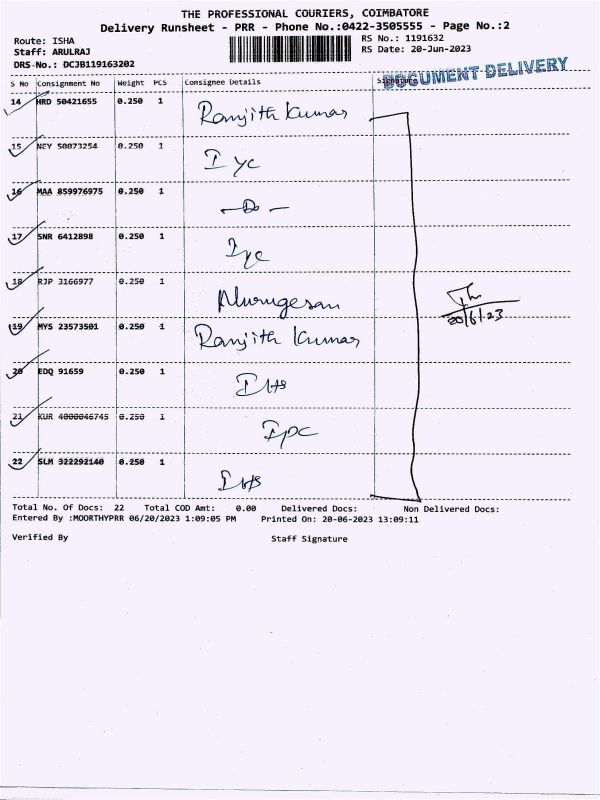 THE PROFESSIONAL COURIERS, COIMBATORE
Delivery Runsheet - PRR - Phone No.:0422-3505555 - Page No.:2
Route: ISHA
Staff: ARULRAJ
DRS-No.: DCJB119163202
RS No.: 1191632
RS Date: 20-Jun-2023
DOCUMENT DELIVERY
S No Consignment No Weight PCS Consignee Details Signature
14 HRD 50421655 0.250 1 Ranjith Kumar
15 NEY 50073254 0.250 1 I yc
16 MAA 859976975 0.250 1 - Do -
17 SNR 6412898 0.250 1 Iyc
18 RJP 3166977 0.250 1 Murugesan
19 MYS 23573501 0.250 1 Ranjith Kumar
20 EDQ 91659 0.250 1 IHS
21 KUR 4000046745 0.250 1 Ipc
22 SLM 322292140 0.250 1 IHS
20/6/23
Total No. Of Docs: 22 Total COD Amt: 0.00 Delivered Docs: Non Delivered Docs:
Entered By :MOORTHYPRR 06/20/2023 1:09:05 PM Printed On: 20-06-2023 13:09:11
Verified By Staff Signature